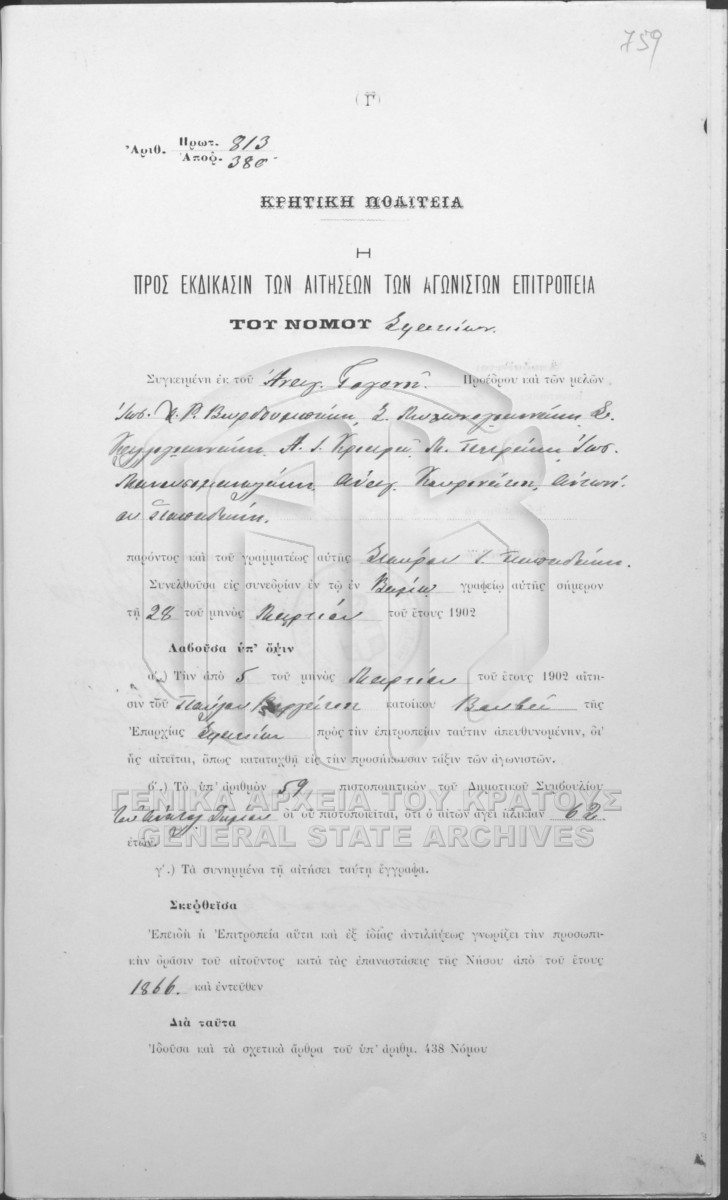 759
(Γ)
Ἀριθ. Πρωτ. 813
Ἀποφ. 380
ΚΡΗΤΙΚΗ ΠΟΛΙΤΕΙΑ
Η
ΠΡΟΣ ΕΚΔΙΚΑΣΙΝ ΤΩΝ ΑΙΤΗΣΕΩΝ ΤΩΝ ΑΓΩΝΙΣΤΩΝ ΕΠΙΤΡΟΠΕΙΑ
ΤΟΥ ΝΟΜΟΥ Σφακίων.
Συγκειμένη ἐκ τοῦ Προέδρου καὶ τῶν μελῶν
Ἰωσ.
Α. Ι. Μ. Ἰωσ.
Ἀντωνί-
ου Παπαδάκη.
παρόντος καὶ τοῦ γραμματέως αὐτῆς Σταύρου Παπαδάκη.
Συνελθοῦσα εἰς συνεδρίαν ἐν τῷ ἐν Βάμῳ γραφείῳ αὐτῆς σήμερον
τῇ 28 τοῦ μηνὸς Μαρτίου τοῦ ἔτους 1902
Λαβοῦσα ὑπ' ὄψιν
α΄.) Τὴν ἀπὸ 5 τοῦ μηνὸς Μαρτίου τοῦ ἔτους 1902 αἴτη-
σιν τοῦ Παύλου κατοίκου τῆς
Ἐπαρχίας Σφακίων πρὸς τὴν ἐπιτροπείαν ταύτην ἀπευθυνομένην, δι'
ἧς αἰτεῖται, ὅπως καταταχθῇ εἰς τὴν προσήκουσαν τάξιν τῶν ἀγωνιστῶν.
β΄.) Τὸ ὑπ' ἀριθμὸν 59 πιστοποιητικὸν τοῦ Δημοτικοῦ Συμβουλίου
δι' οὗ πιστοποιεῖται, ὅτι ὁ αἰτῶν ἄγει ἡλικίαν 62
ἐτῶν.
ΓΕΝΙΚΑ ΑΡΧΕΙΑ ΤΟΥ ΚΡΑΤΟΥΣ
GENERAL STATE ARCHIVES
γ΄.) Τὰ συνημμένα τῇ αἰτήσει ταύτῃ ἔγγραφα.
Σκεφθεῖσα
Ἐπειδὴ ἡ Ἐπιτροπεία αὕτη καὶ ἐξ ἰδίας ἀντιλήψεως γνωρίζει τὴν προσωπι-
κὴν δρᾶσιν τοῦ αἰτοῦντος κατὰ τὰς ἐπαναστάσεις τῆς Νήσου ἀπὸ τοῦ ἔτους
1866. καὶ ἐντεῦθεν
Διὰ ταῦτα
Ἰδοῦσα καὶ τὰ σχετικὰ ἄρθρα τοῦ ὑπ' ἀριθμ. 438 Νόμου